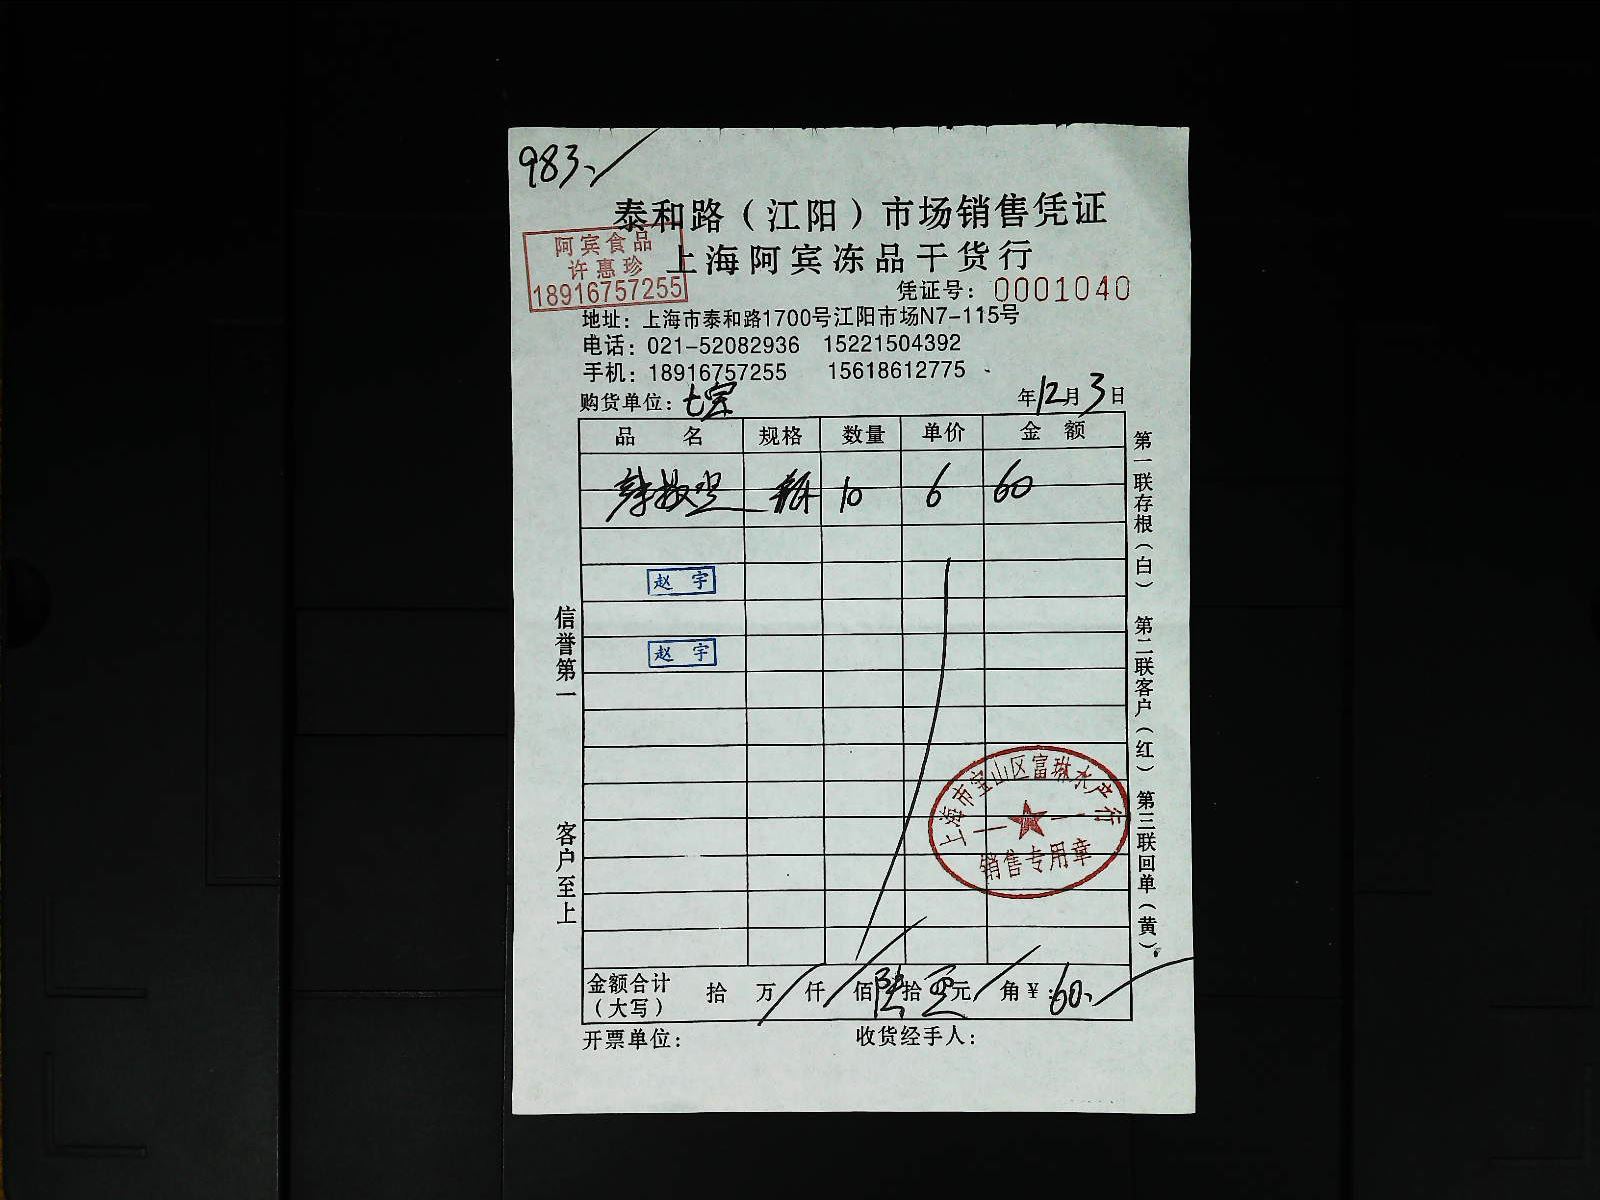 983、
泰和路（江阳）市场销售凭证
阿宾食品
许惠珍
18916757255
上海阿宾冻品干货行
凭证号：0001040
地址：上海市泰和路1700号江阳市场N7-115号
电话：021-52082936 15221504392
手机：18916757255 15618612775
购货单位：七宝 年12月3日
品名 规格 数量 单价 金额
10 6 60
赵宇
赵宇
信誉第一
客户至上
上海市宝山区富琳水产行
销售专用章
金额合计（大写） 拾 万 仟 佰 陆 拾 零 元 角 ￥：60、
开票单位： 收货经手人：
第一联存根（白） 第二联客户（红） 第三联回单（黄）